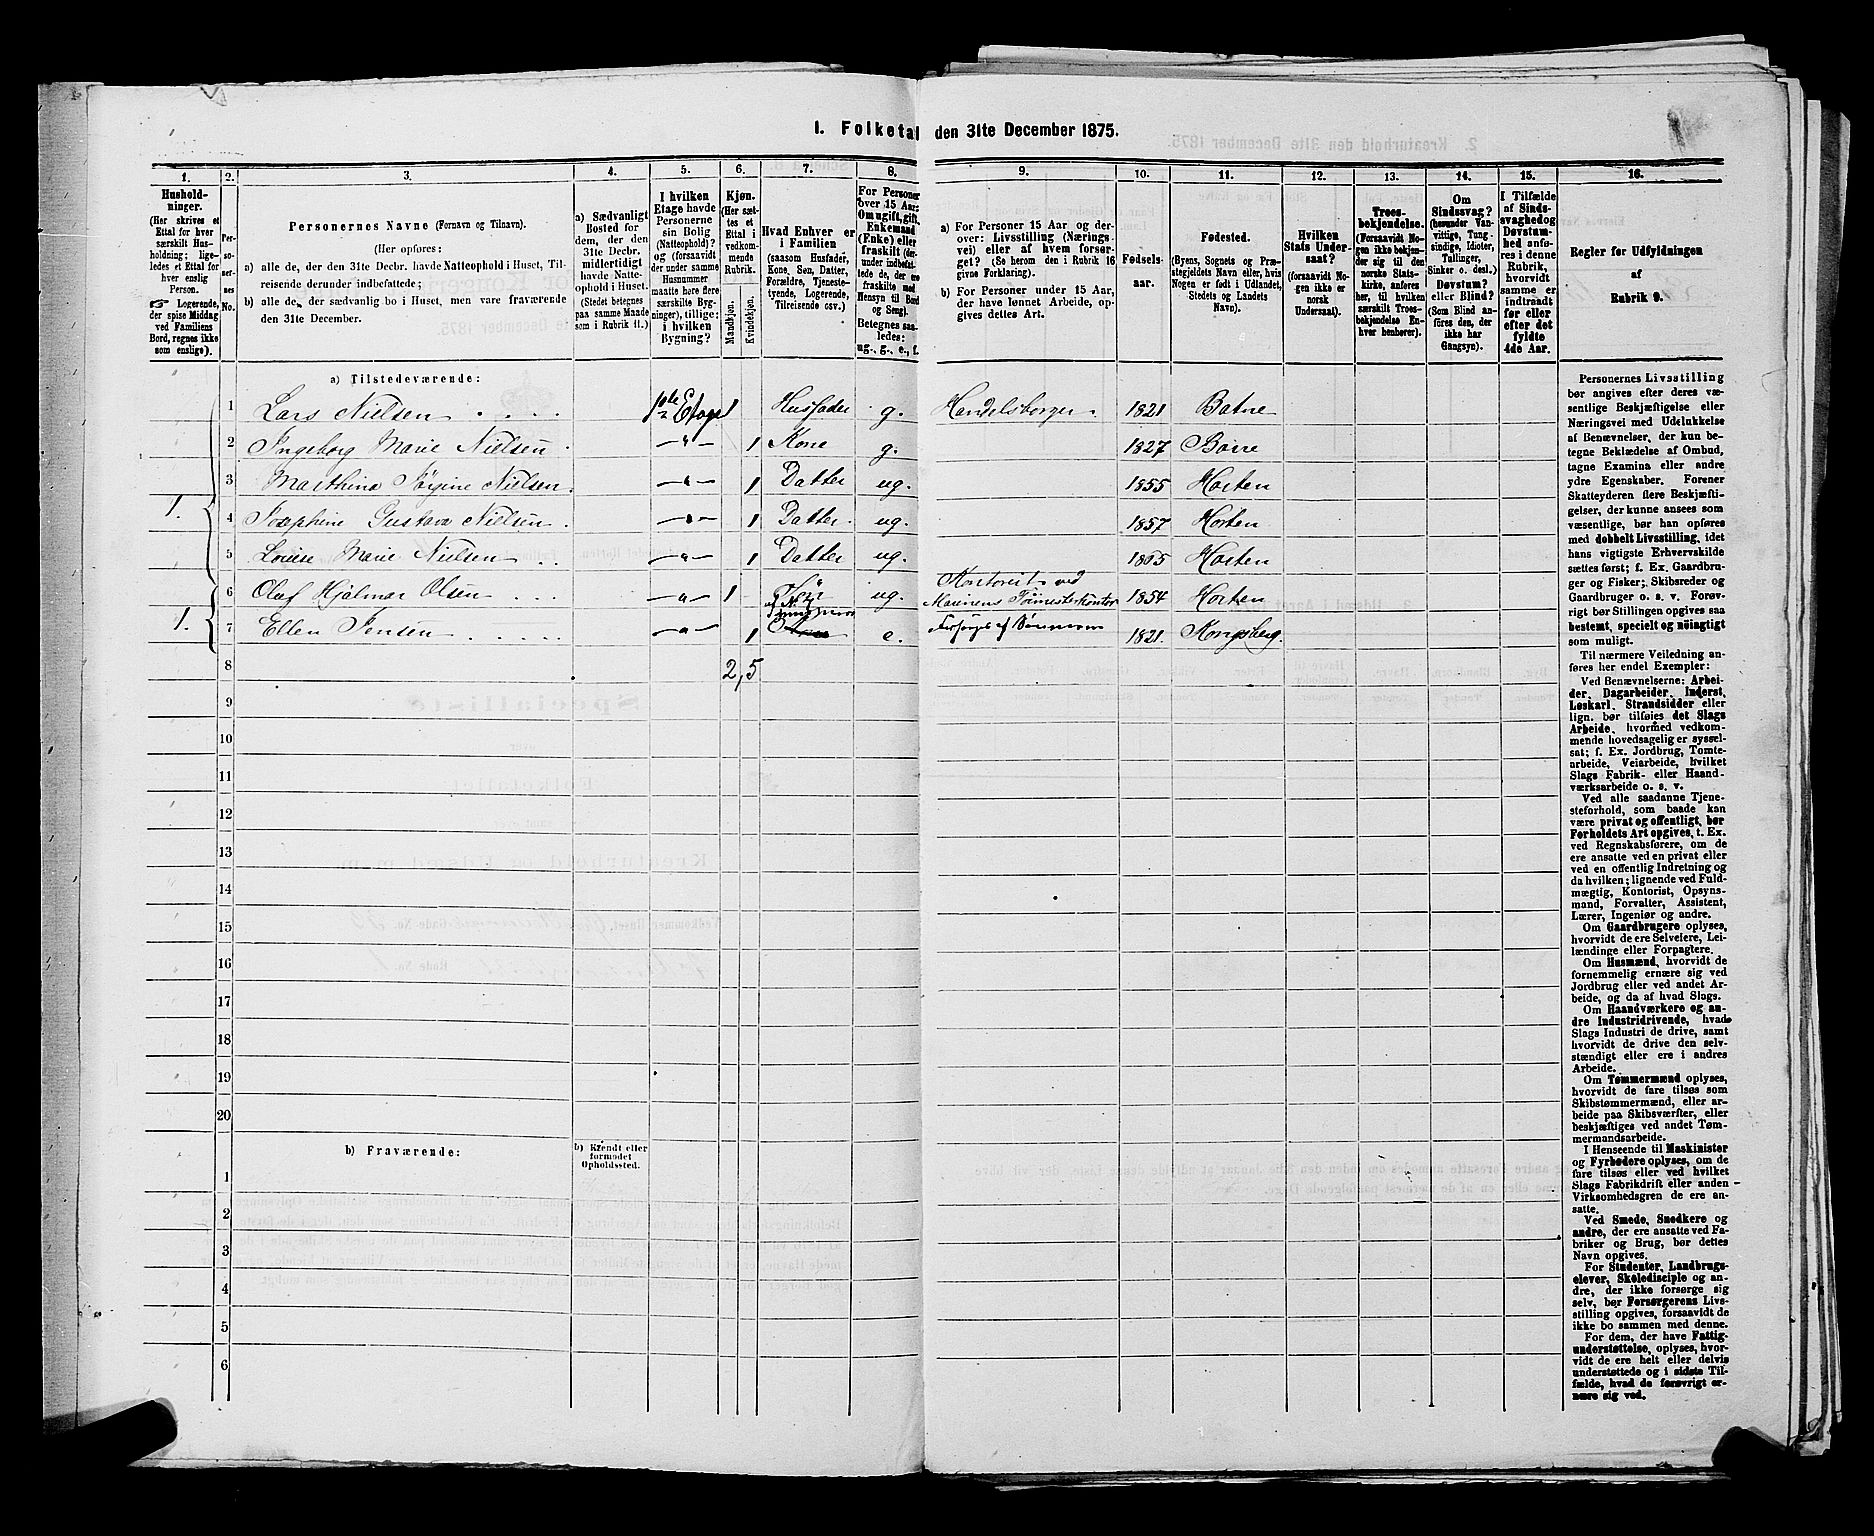 1. Folketal den 31te December 1875.
1. 2. 3. 4. 5. 6. 7. 8. 9. 10. 11. 12. 13. 14. 15. 16.
Hushold-
ninger.
(Her skrives et
Ettal for hver
særskilt Hus-
holdning; lige-
ledes et Ettal for
hver enslig
Person.
☞ Logerende,
der spise Middag
ved Familiens
Bord, regnes ikke
som enslige).
Per-
so-
ner-
nes
No.
Personernes Navne (Fornavn og Tilnavn).
(Her opføres:
a) alle de, der den 31te Decbr. havde Natteophold i Huset, Til-
reisende derunder indbefattede;
b) alle de, der sædvanlig bo i Huset, men vare fraværende
den 31te December.
a) Sædvanligt
Bosted for
dem, der den
31te Decbr.
midlertidigt
havde Natte-
ophold i Huset.
(Stedet betegnes
paa samme Maade
som i Rubrik 11.)
I hvilken
Etage havde
Personerne
sin Bolig
(Natteophold)?
og (forsaavidt
der under samme
Husnummer
maatte høre flere
særskilte Byg-
ninger), tillige:
i hvilken
Bygning?
Kjøn.
(Her sæt-
tes et
Ettal i
vedkom-
mende
Rubrik.
Mandkjøn.
Kvindekjøn.
Hvad Enhver er
i Familien
(saasom Husfader,
Kone, Søn, Datter,
Forældre, Tjeneste-
tyende, Logerende,
Tilreisende osv.)
For Personer
over 15 Aar:
Om ugift, gift,
Enkemand
(Enke) eller
fraskilt (der-
under indbefat-
tede de, der ere
fraskilte med
Hensyn til Bord
og Seng).
Betegnes saa-
ledes:
ug., g., e., f.
a) For Personer 15 Aar og der-
over: Livsstilling (Nærings-
vei) eller af hvem forsør-
get? (Se herom den i Rubrik 16
givne Forklaring).
b) For Personer under 15 Aar,
der have lønnet Arbeide, op-
gives dettes Art.
Fødsels-
aar.
Fødested.
(Byens, Sognets og Præ-
stegjeldets Navn eller, hvis
Nogen er født i Udlandet,
Stedets og Landets
Navn).
Hvilken
Stats Under-
saat?
(forsaavidt No-
gen ikke er
norsk
Undersaat).
Troes-
bekjendelse.
(Forsaavidt No-
gen ikke bekjen-
der sig til den
norske Stats-
kirke, anføres
her, til hvilken
særskilt Troes-
bekjendelse En-
hver henhører).
Om
Sindssvag?
(herunder Van-
vittige, Tung-
sindige, Idioter,
Tullinger,
Sinker o. desl.)
Døvstum?
eller Blind?
(Som Blind an-
føres den, der
ikke har
Gangsyn).
I Tilfælde
af Sinds-
svaghed og
Døvstum-
hed anfø-
res i denne
Rubrik,
hvorvidt
samme er
indtraadt
før eller
efter det
fyldte
4de Aar.
Regler for Udfyldningen
af
Rubrik 9.
a) Tilstedeværende:
1 Lars Nielsen 1ste Etage 1 Husfader g. Handelsborger 1821
2 Ingeborg Marie Nielsen 1 Kone g. 1827
3 Marthine Jørgine Nielsen 1 Datter ug. 1855 Horten
1. 4 Josephine Gustava Nielsen 1 Datter ug. 1857 Horten
5 Louise Marie Nielsen 1 Datter ug. 1865 Horten
6 Olaf Hjalmar Olsen 1 ug. Kontorist ved 1854 Horten
Marinens
1. 7 Ellen Jensen 1 e. af 1821 Kongsberg.
8 2,5
9
10
11
12
13
14
15
16
17
18
19
20
b) Fraværende:
b) Kjendt eller
formodet
Opholdssted.
1
2
3
4
5
6
Personernes Livsstilling
bør angives efter deres væ-
sentlige Beskjæftigelse eller
Næringsvei med Udelukkelse
af Benævnelser, der kun be-
tegne Beklædelse af Ombud,
tagne Examina eller andre
ydre Egenskaber. Forener
Skatteyderen flere Beskjæfti-
gelser, der kunne ansees som
væsentlige, bør han opføres
med dobbelt Livsstilling, idet
hans vigtigste Erhvervskilde
sættes først; f. Ex. Gaardbru-
ger og Fisker; Skibsreder og
Gaardbruger o. s. v. Forøv-
rigt bør Stillingen opgives saa
bestemt, specielt og nøiagtigt
som muligt.
Til nærmere Veiledning an-
føres her endel Exempler:
Ved Benævnelserne: Arbei-
der, Dagarbeider, Inderst,
Løskarl, Strandsidder eller
lign. bør tilføies det Slags
Arbeide, hvormed vedkom-
mende hovedsagelig er syssel-
sat; f. Ex. Jordbrug, Tomte-
arbeide, Veiarbeide, hvilket
Slags Fabrik- eller Haand-
værksarbeide o. s. v.
Ved alle saadanne Tjene-
steforhold, som baade kan
være privat og offentligt, bør
Forholdets Art opgives, t. Ex.
ved Regnskabsførere, om de
ere ansatte ved en privat eller
ved en offentlig Indretning og
da hvilken; lignende ved Fuld-
mægtig, Kontorist, Opsyns-
mand, Forvalter, Assistent,
Lærer, Ingeniør og andre.
Om Gaardbrugere oplyses,
hvorvidt de ere Selveiere, Lei-
lændinge eller Forpagtere.
Om Husmænd, hvorvidt de
fornemmelig ernære sig ved
Jordbrug eller ved andet Ar-
beide, og da af hvad Slags.
Om Haandværkere og an-
dre Industridrivende, hvad
Slags Industri de drive, samt
hvorvidt de drive den selv-
stændigt eller ere i andres
Arbeide.
Om Tømmermænd oplyses,
hvorvidt de fare tilsøs som
Skibstømmermænd, eller ar-
beide paa Skibsværfter, eller
beskjæftiges ved andet Tøm-
mermandsarbeide.
I Henseende til Maskinister
og Fyrbødere oplyses, om de
fare tilsøs eller ved hvilket
Slags Fabrikdrift eller anden
Virksomhedsgren de ere an-
satte.
Ved Smede, Snedkere og
andre, der ere ansatte ved Fa-
briker og Brug, bør dettes
Navn opgives.
For Studenter, Landbrugs-
elever, Skoledisciple og an-
dre, der ikke forsørge sig
selv, bør Forsørgerens Livs-
stilling opgives, forsaavidt de
ikke bo sammen med denne.
For dem, der have Fattig-
understøttelse, oplyses, hvor-
vidt de ere helt eller delvis
understøttede og i sidste Til-
fælde, hvad de forøvrigt er-
nære sig ved.